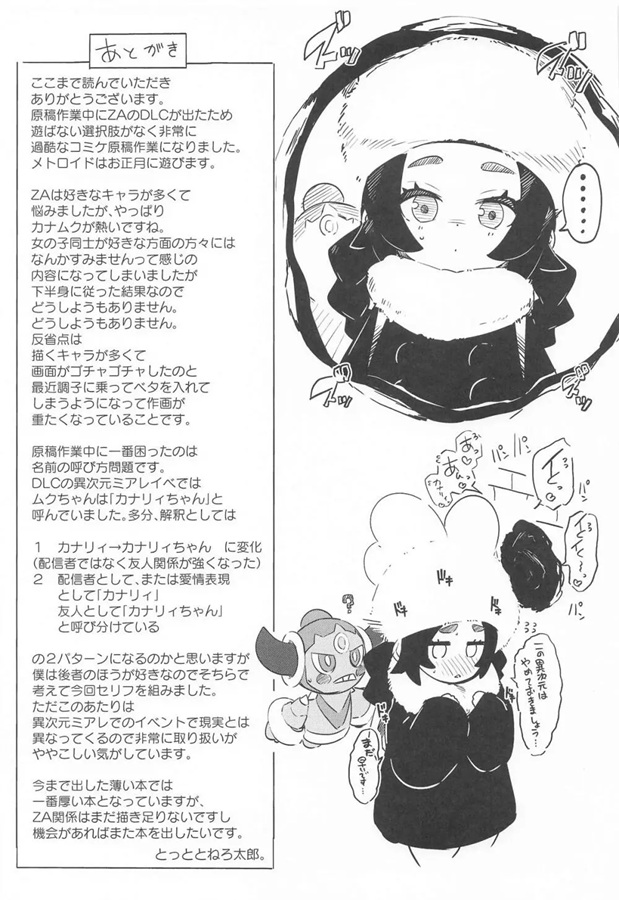 あとがき
ここまで読んでいただき
ありがとうございます。
原稿作業中にZAのDLCが出たため
遊ばない選択肢がなく非常に
過酷なコミケ原稿作業になりました。
メトロイドはお正月に遊びます。
ZAは好きなキャラが多くて
悩みましたが、やっぱり
カナムクが熱いですね。
女の子同士が好きな方面の方々には
なんかすみませんって感じの
内容になってしまいましたが
下半身に従った結果なので
どうしようもありません。
どうしようもありません。
反省点は
描くキャラが多くて
画面がゴチャゴチャしたのと
最近調子に乗ってベタを入れて
しまうようになって作画が
重たくなっていることです。
原稿作業中に一番困ったのは
名前の呼び方問題です。
DLCの異次元ミアレイベでは
ムクちゃんは「カナリィちゃん」と
呼んでいました。多分、解釈としては
1　カナリィ→カナリィちゃん　に変化
(配信者ではなく友人関係が強くなった)
2　配信者として、または愛情表現
として「カナリィ」
友人として「カナリィちゃん」
と呼び分けている
の2パターンになるのかと思いますが
僕は後者のほうが好きなのでそちらで
考えて今回セリフを組みました。
ただこのあたりは
異次元ミアレでのイベントで現実とは
異なってくるので非常に取り扱いが
ややこしい気がしています。
今まで出した薄い本では
一番厚い本となっていますが、
ZA関係はまだ描き足りないですし
機会があればまた本を出したいです。
とっととねろ太郎。
ズズッ
ズズッ
ズズッ
ズズッ
……
パンパン
パン
パン
パン
あっ♡
あん♡
イくっ
イくイく〜っ
ドキ
ドキ
ドキ
ドキ
?
この異次元は
やめておきましょう…
まだ
早いです…